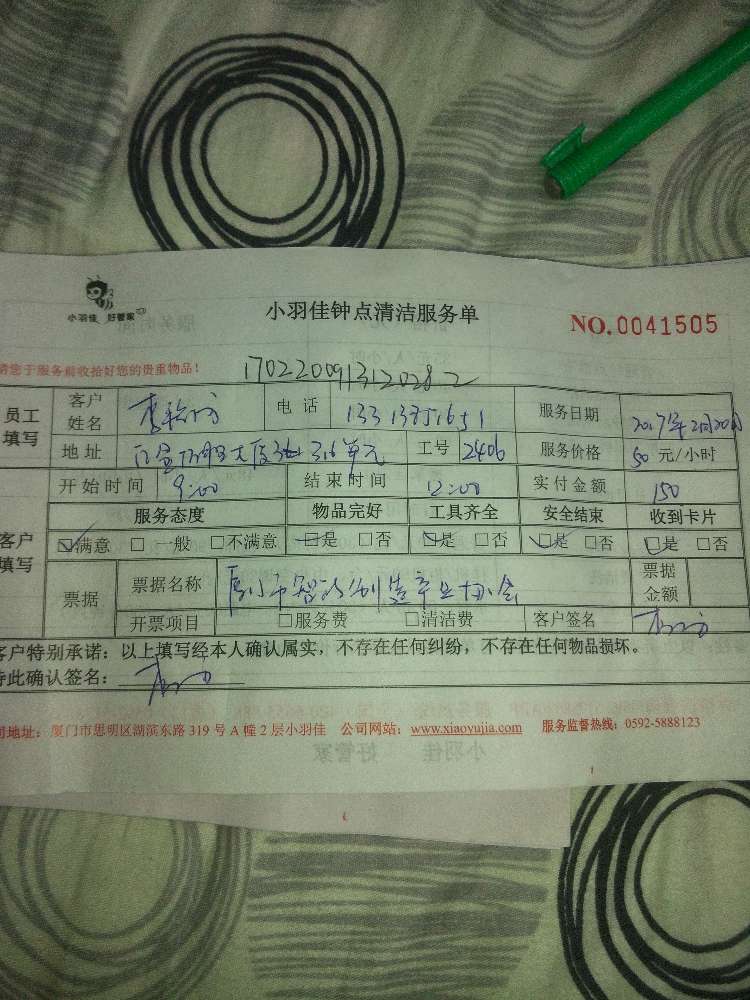 小羽佳 好管家
小羽佳钟点清洁服务单
NO.0041505
请您于服务前收拾好您的贵重物品!
170220091312028 2
员工填写 客户姓名 电话 服务日期 2017年2月20日
地址 316单元 工号 2406 服务价格 50 元/小时
开始时间 9:00 结束时间 12:00 实付金额 150
客户填写 服务态度 物品完好 工具齐全 安全结束 收到卡片
☑满意 □一般 □不满意 ☑是 □否 ☑是 □否 ☑是 □否 ☑是 □否
票据 票据名称 厦门市智能制造产业协会 票据金额
开票项目 □服务费 □清洁费 客户签名
客户特别承诺:以上填写经本人确认属实,不存在任何纠纷,不存在任何物品损坏。
特此确认签名:
公司地址:厦门市思明区湖滨东路 319 号 A 幢 2 层小羽佳 公司网站:www.xiaoyujia.com 服务监督热线:0592-5888123